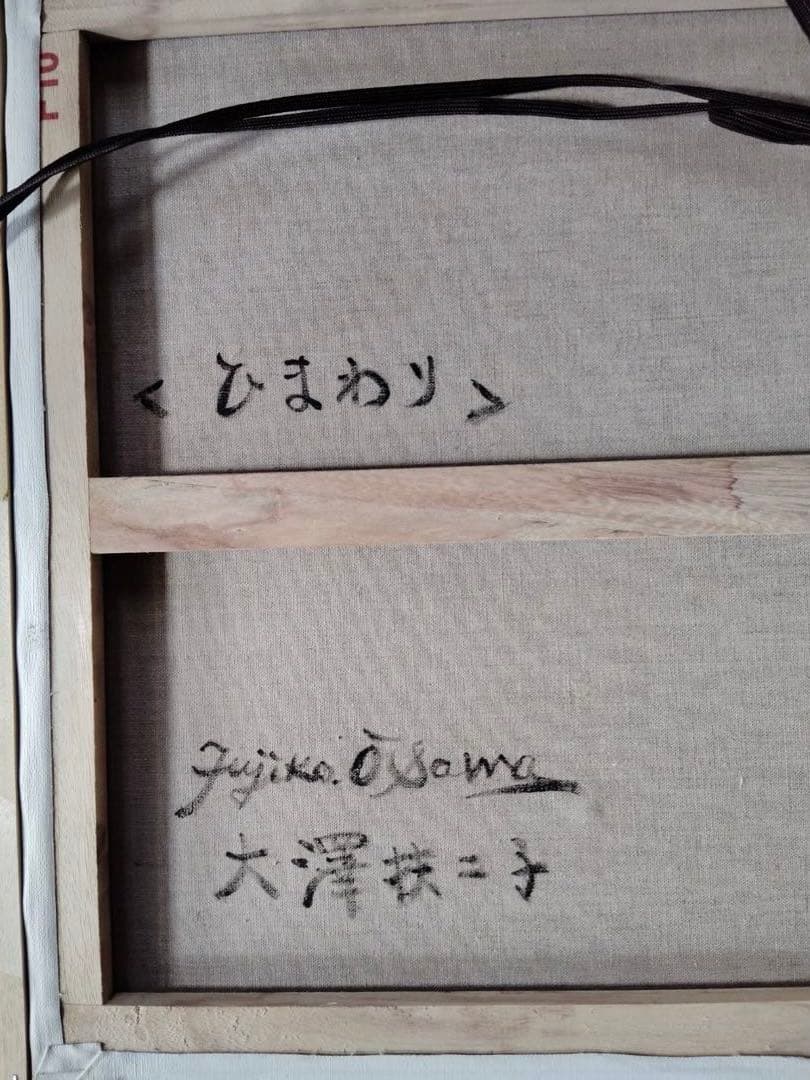 F10
<ひまわり>
Fujiko.Ōsawa
大澤扶二子